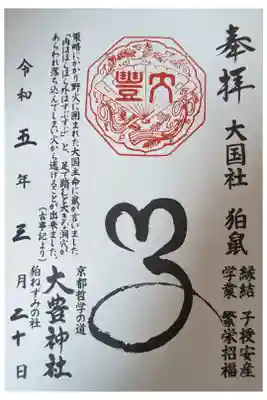 奉拝
大国社 狛鼠
縁結 子授安産
学業 繁栄招福
大豐
京都哲学の道
大豊神社
狛ねずみの社
策略にかかり野火に囲まれた大国主命に鼠が言いました
「内はほらほら外はすぶすぶ」と、足で踏むと大きな洞穴が
あらわれ落ち込んでしまい火から逃げることが出来ました。
(古事記より)
令和五年三月二十日